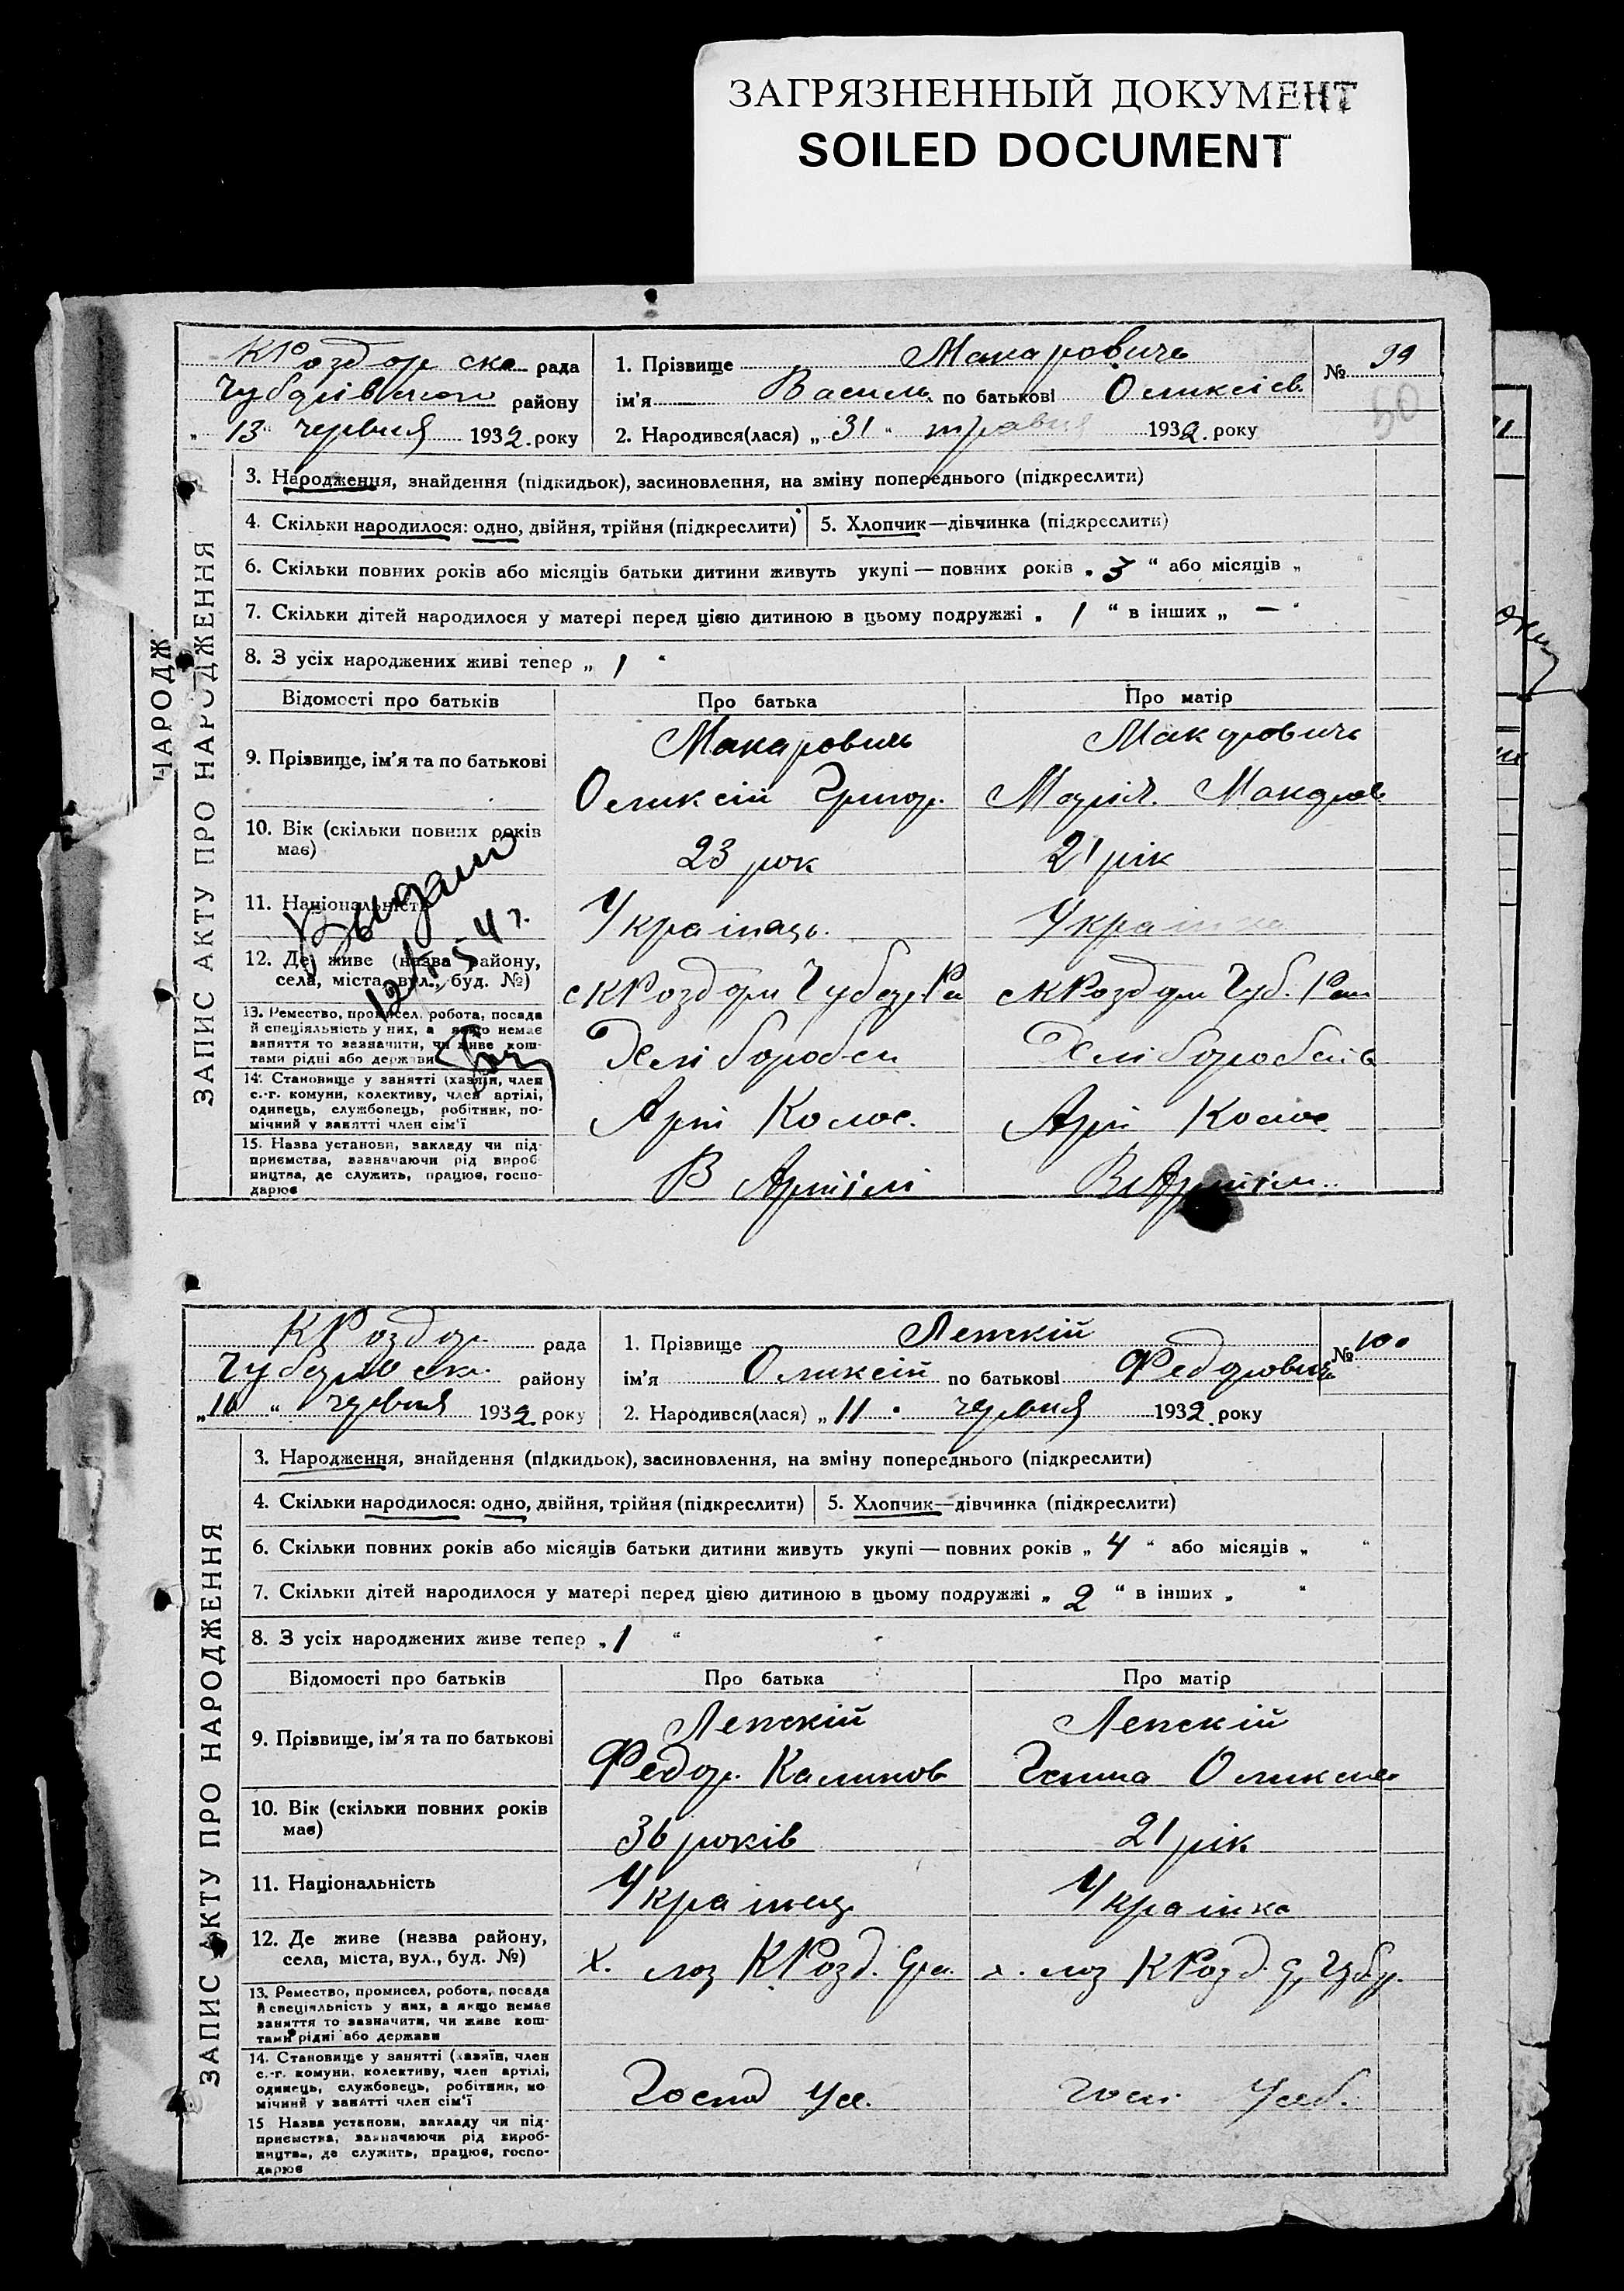 ЗАГРЯЗНЕННЫЙ ДОКУМЕНТ
SOILED DOCUMENT
КРоздор ска рада
Чубарівськ району
„ 13 " червня 1932. року
1. Прізвище Макаровичь
ім'я Василь по батькові Оликсіев
2. Народився(лася) „ 31 " травня 1932. року
№ 99
50
ЗАПИС АКТУ ПРО НАРОДЖЕННЯ
НАРОДЖ
3. Народження, знайдення (підкидьок), засиновлення, на зміну попереднього (підкреслити)
4. Скільки народилося: одно, двійня, трійня (підкреслити)
5. Хлопчик—дівчинка (підкреслити)
6. Скільки повних років або місяців батьки дитини живуть укупі — повних років „ 3 " або місяців „ "
7. Скільки дітей народилося у матері перед цією дитиною в цьому подружжі „ 1 " в інших „ — "
8. З усіх народжених живі тепер „ 1 "
Відомості про батьків Про батька Про матір
9. Прізвище, ім'я та по батькові
Макаровичь
Оликсій Григор.
Макаровичь
Марія. Макаров
10. Вік (скільки повних років
має)
23 рок
21 рік
11. Національність
Українць.
Українка
12. Де живе (назва району,
села, міста, вул., буд. №)
с КРоздори Чубар Ра
с КРоздори Чуб. Рай
Выдано
12/V 54 г.
13. Ремество, промисел, робота, посада
й спеціяльність у них, а якщо немає
заняття то зазначити, чи живе кош-
тами рідні або держави
Хліборобси
Хліборобсів
14. Становище у занятті (хазяїн, член
с.-г. комуни, колективу, член артілі,
одинець, службовець, робітник, по-
мічний у занятті член сім'ї
Арт Колос.
Арт Колос
15. Назва установи, закладу чи під-
приємства, зазначаючи рід вироб-
ництва, де служить, працює, госпо-
дарює
В Артілі
В Артіли
КРоздор. рада
Чубарівськ. району
„ 1 " червня 1932. року
1. Прізвище Лепскій
ім'я Оликсій по батькові Федорович
2. Народився(лася) „ 11 " червня 1932. року
№ 100
ЗАПИС АКТУ ПРО НАРОДЖЕННЯ
3. Народження, знайдення (підкидьок), засиновлення, на зміну попереднього (підкреслити)
4. Скільки народилося: одно, двійня, трійня (підкреслити)
5. Хлопчик—дівчинка (підкреслити)
6. Скільки повних років або місяців батьки дитини живуть укупі — повних років „ 4 " або місяців „ "
7. Скільки дітей народилося у матері перед цією дитиною в цьому подружжі „ 2 " в інших „ "
8. З усіх народжених живе тепер „ 1 "
Відомості про батьків Про батька Про матір
9. Прізвище, ім'я та по батькові
Лепскій
Федор. Калинов
Лепскій
Ганна Оликсів
10. Вік (скільки повних років
має)
36 років
21 рік
11. Національність
Українец
Українка
12. Де живе (назва району,
села, міста, вул., буд. №)
х. КРозд.
х. КРозд.
13. Ремество, промисел, робота, посада
й спеціяльність у них, а якщо немає
заняття то зазначити, чи живе кош-
тами рідні або держави
14. Становище у занятті (хазяїн, член
с.-г. комуни, колективу, член артілі,
одинець, службовець, робітник, по
мічний у занятті член сім'ї
Господ Ус.
Госп Усаб.
15 Назва установи, закладу чи під-
приємства, зазначаючи рід вироб-
ництва, де служить, працює, госпо-
дарює